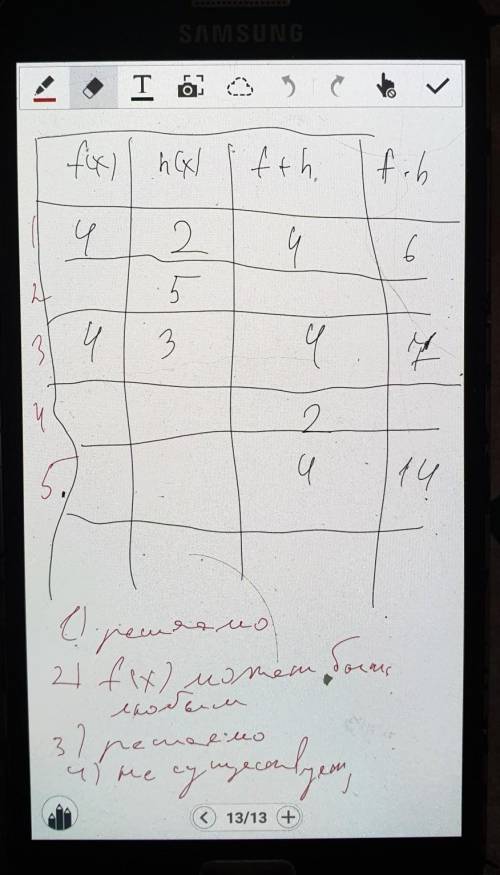 SAMSUNG
T
f(x) h(x) f+h f·h
1 4 2 4 6
2 5
3 4 3 4 7
4 2
5. 4 14
1) решаемо
2) f(x) может быть
любым
3) решаемо
4) не существует,
13/13